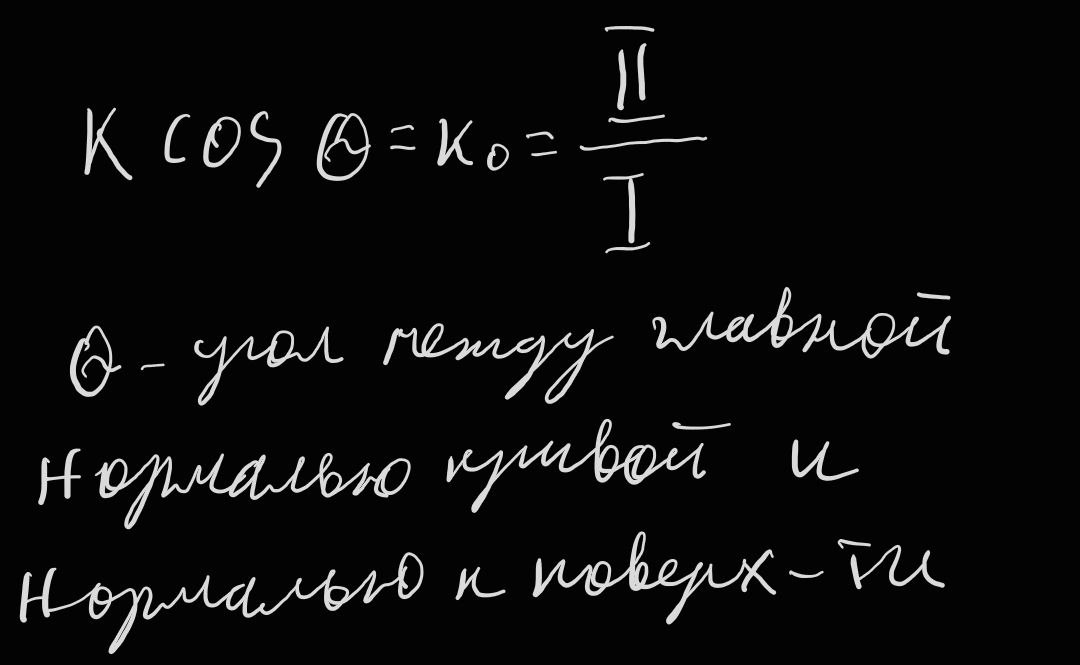 K cos θ = K₀ = II / I
θ - угол между главной
нормалью кривой и
нормалью к поверх-ти